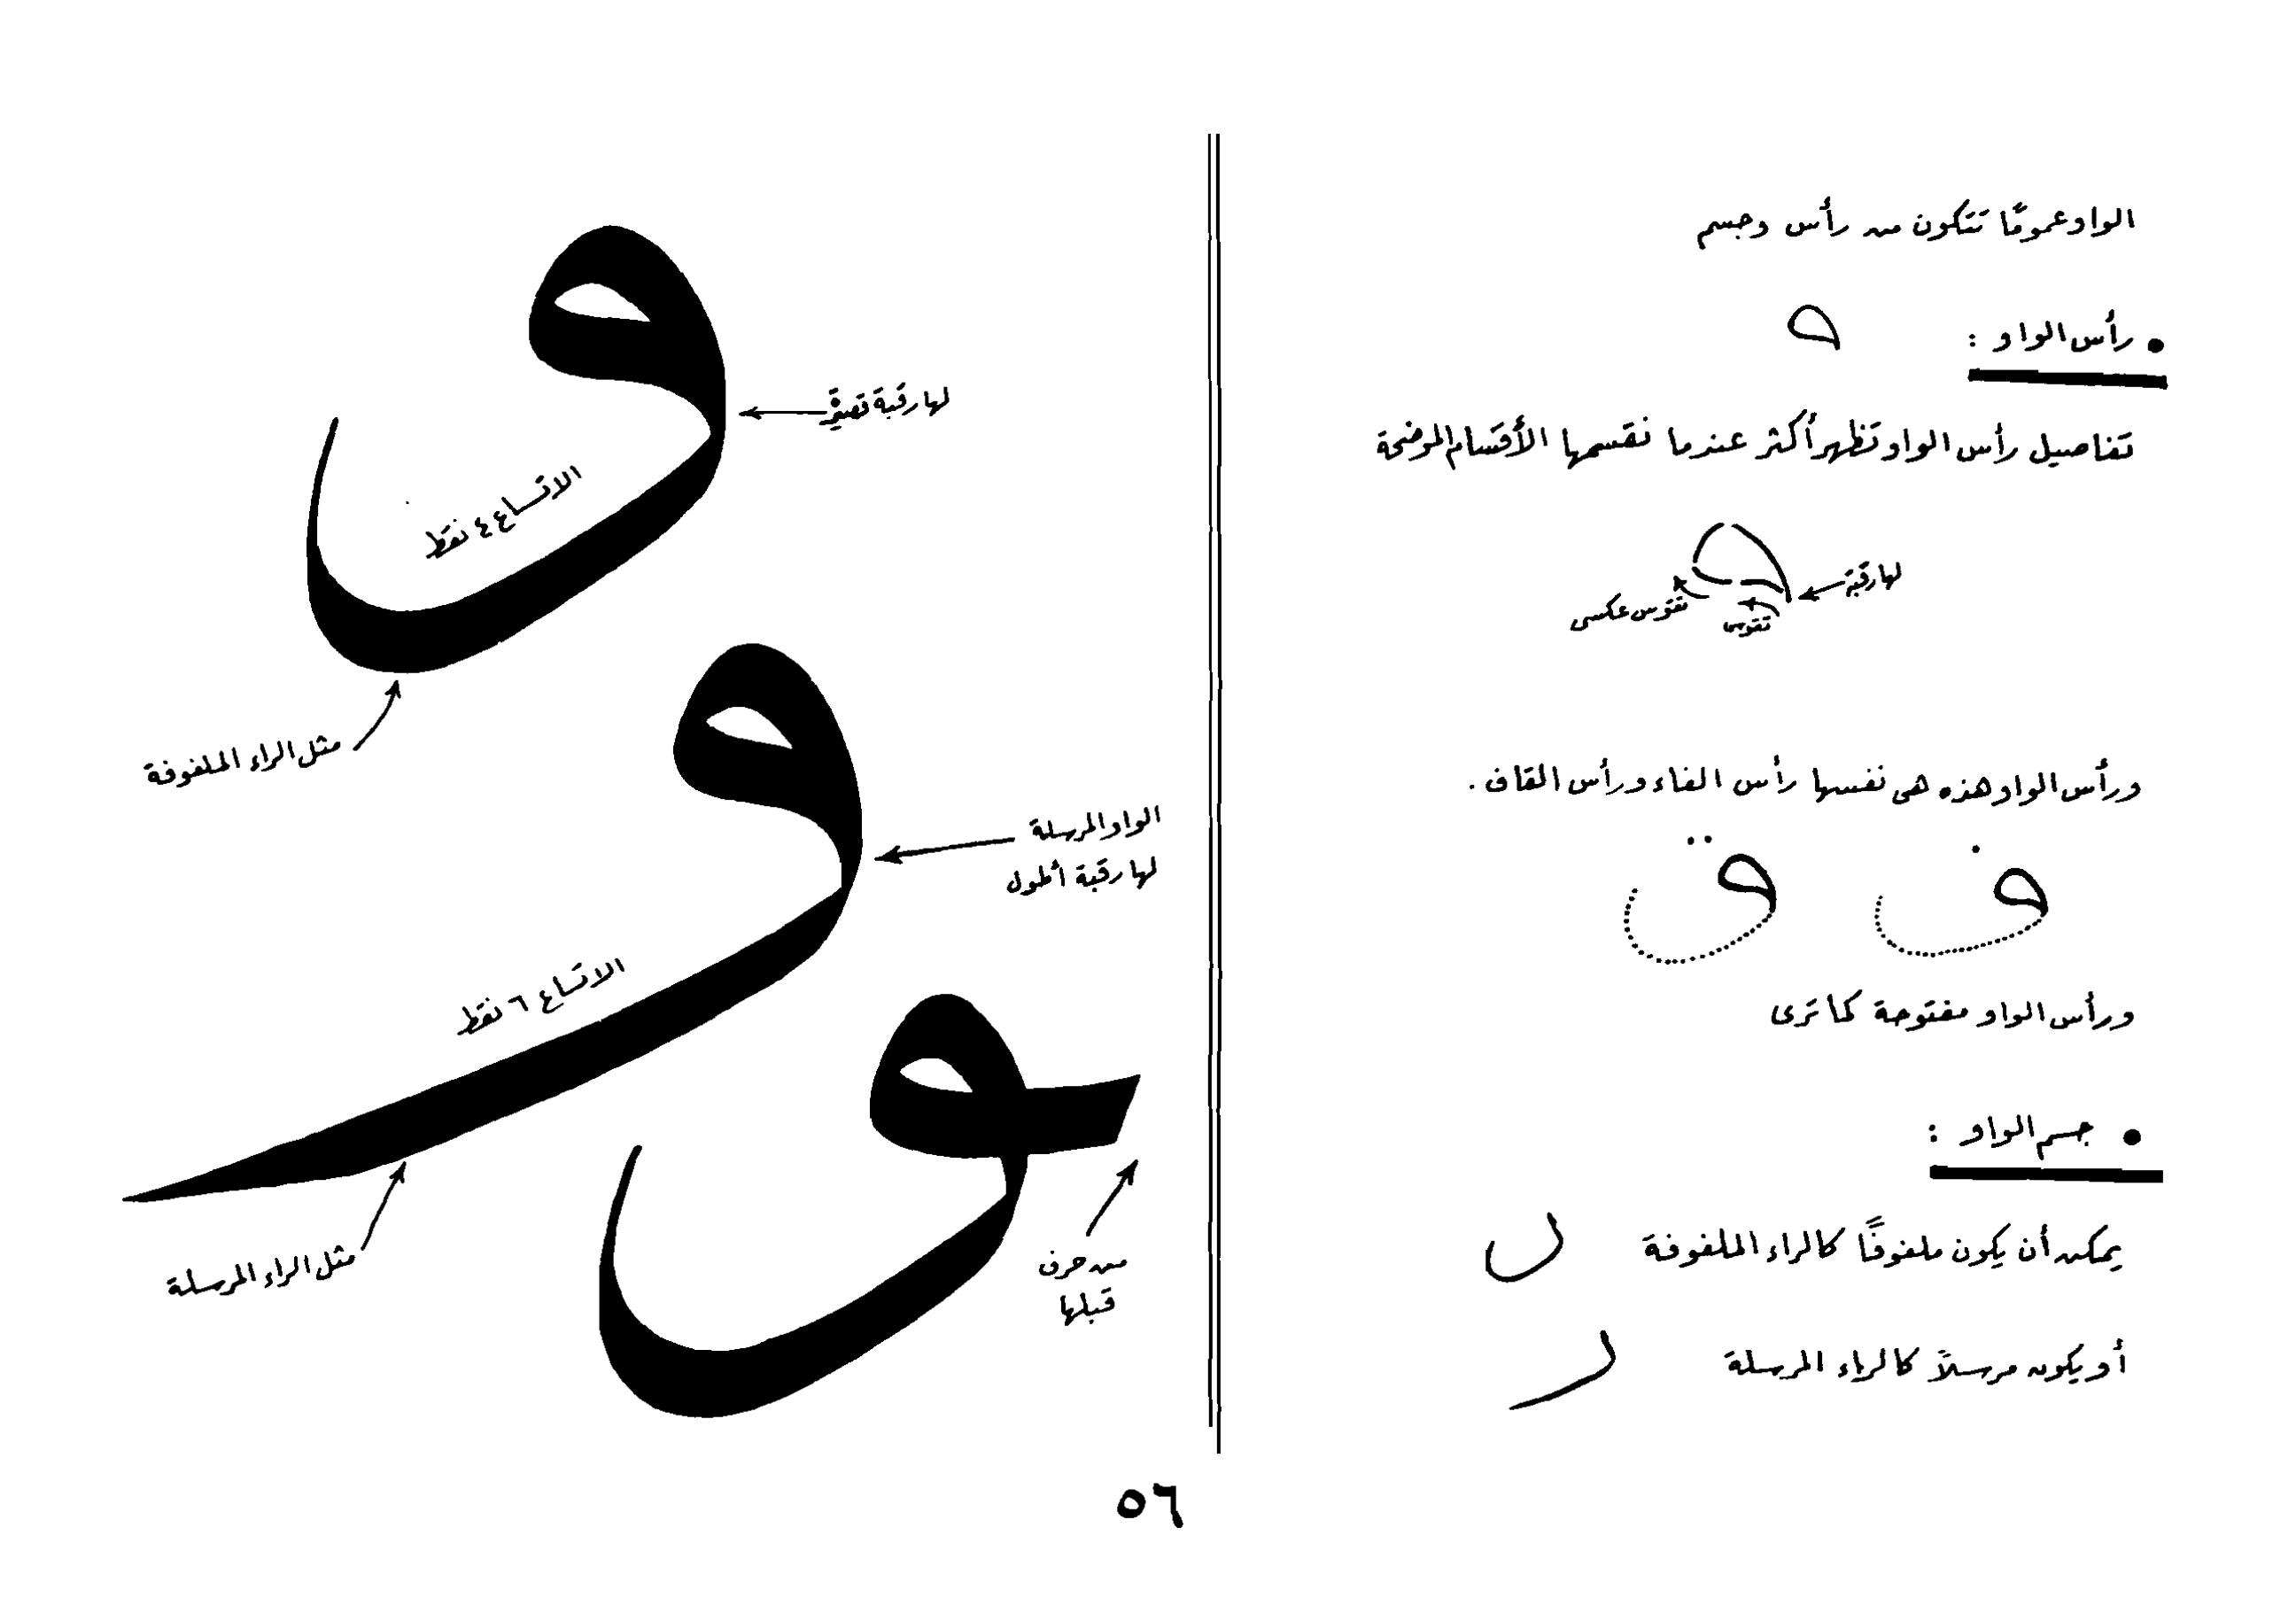 الواو عمومًا تتكون من رأس وجسم
• رأس الواو :
تفاصيل رأس الواو تظهر أكثر عندما نقسمها الأقسام الموضحة
لها رقبة
تقوس
تقوس عكسى
ورأس الواو هذه هى نفسها رأس الفاء ورأس القاف .
ف ق
ورأس الواو مفتوحة كما ترى
• جسم الواو :
يمكن أن يكون ملفوفًا كالراء الملفوفة
أو يكون مرسلاً كالراء المرسلة
و
لها رقبة قصيرة
الاتساع ٤ نقط
مثل الراء الملفوفة
و
الواو المرسلة
لها رقبة أطول
الاتساع ٦ نقط
مثل الراء المرسلة
ـو
من حرف
قبلها
٥٦